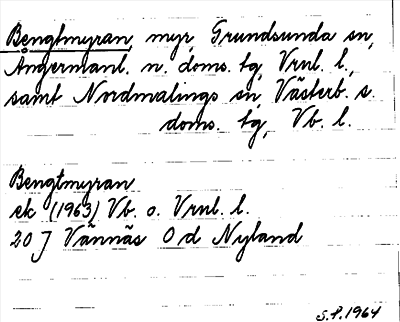 Bengtmyran, myr, Grundsunda sn,
Ångermanl. n. doms. tg, Vrnl. l,
samt Nordmalings sn, Västerb. s.
doms. tg, Vb. l.
Bengtmyran
ek (1963) Vb. o. Vrnl. l.
20 J Vännäs 0 d Nyland
S.P. 1964